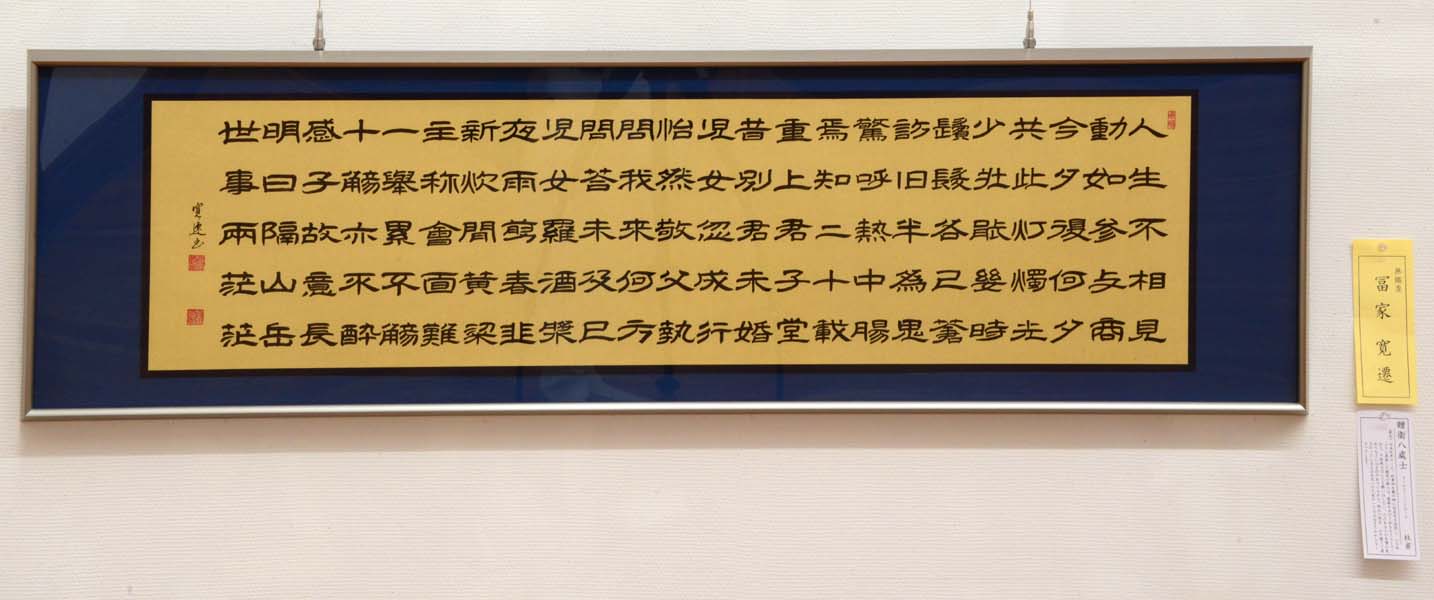 人生不相見
動如参与商
今夕復何夕
共此灯燭光
少壮能幾時
鬢髮各已蒼
訪旧半為鬼
驚呼熱中腸
焉知二十載
重上君子堂
昔別君未婚
児女忽成行
怡然敬父執
問我来何方
問答未及已
児女羅酒漿
夜雨剪春韭
新炊間黄粱
主称會面難
一舉累不觴
十觴亦不酔
感子故意長
明日隔山岳
世事兩茫茫
寛遷書
冨家寛遷
贈衛八處士
杜甫